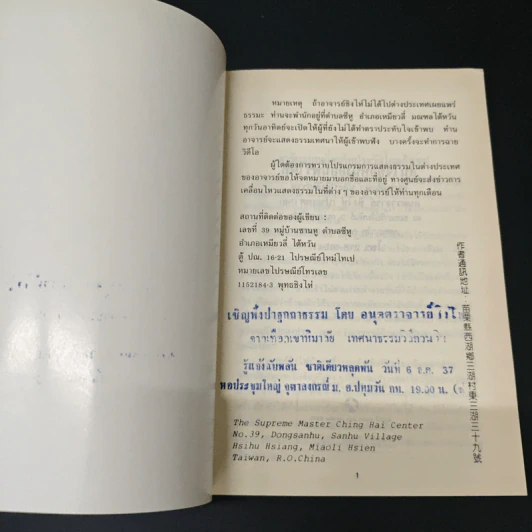 หมายเหตุ ถ้าอาจารย์ชิงไห่ไม่ได้ไปต่างประเทศเผยแพร่
ธรรมะ ท่านจะพำนักอยู่ที่ตำบลซีหู อำเภอเหมียวลี่ มณฑลไต้หวัน
ทุกวันอาทิตย์จะเปิดให้ผู้ที่ยังไม่ได้ทำตราประทับใจเข้าพบ ท่าน
อาจารย์จะแสดงธรรมเทศนาให้ผู้เข้าพบฟัง บางครั้งจะทำการฉาย
วิดีโอ
ผู้ใดต้องการทราบโปรแกรมการแสดงธรรมในต่างประเทศ
ของอาจารย์ขอให้จดหมายมาบอกชื่อและที่อยู่ ทางศูนย์จะส่งข่าวการ
เคลื่อนไหวแสดงธรรมในที่ต่าง ๆ ของอาจารย์ให้ท่านทุกเดือน
สถานที่ติดต่อของผู้เขียน :
เลขที่ 39 หมู่บ้านซานหู ตำบลซีหู
อำเภอเหมียวลี่ ไต้หวัน
ตู้ ปณ. 16-21 ไปรษณีย์ใหม่ไทเป
หมายเลขไปรษณีย์โทรเลข
1152184-3 พุทธชิงไห่
เชิญฟังปาฐกถาธรรม โดย อนุตตราจารย์ชิงไห่
เทศนาธรรมวิธีกวนอิม
รู้แจ้งฉับพลัน ชาติเดียวหลุดพ้น วันที่ 6 ต.ค. 37
หอประชุมใหญ่ จุฬาลงกรณ์ ม. ถ.ปทุมวัน กท. 19.00 น.
The Supreme Master Ching Hai Center
No.39, Dongsanhu, Sanhu Village
Hsihu Hsiang, Miaoli Hsien
Taiwan, R.O.China
作者通訊地址：苗栗縣西湖鄉三湖村東三湖三十九號
1